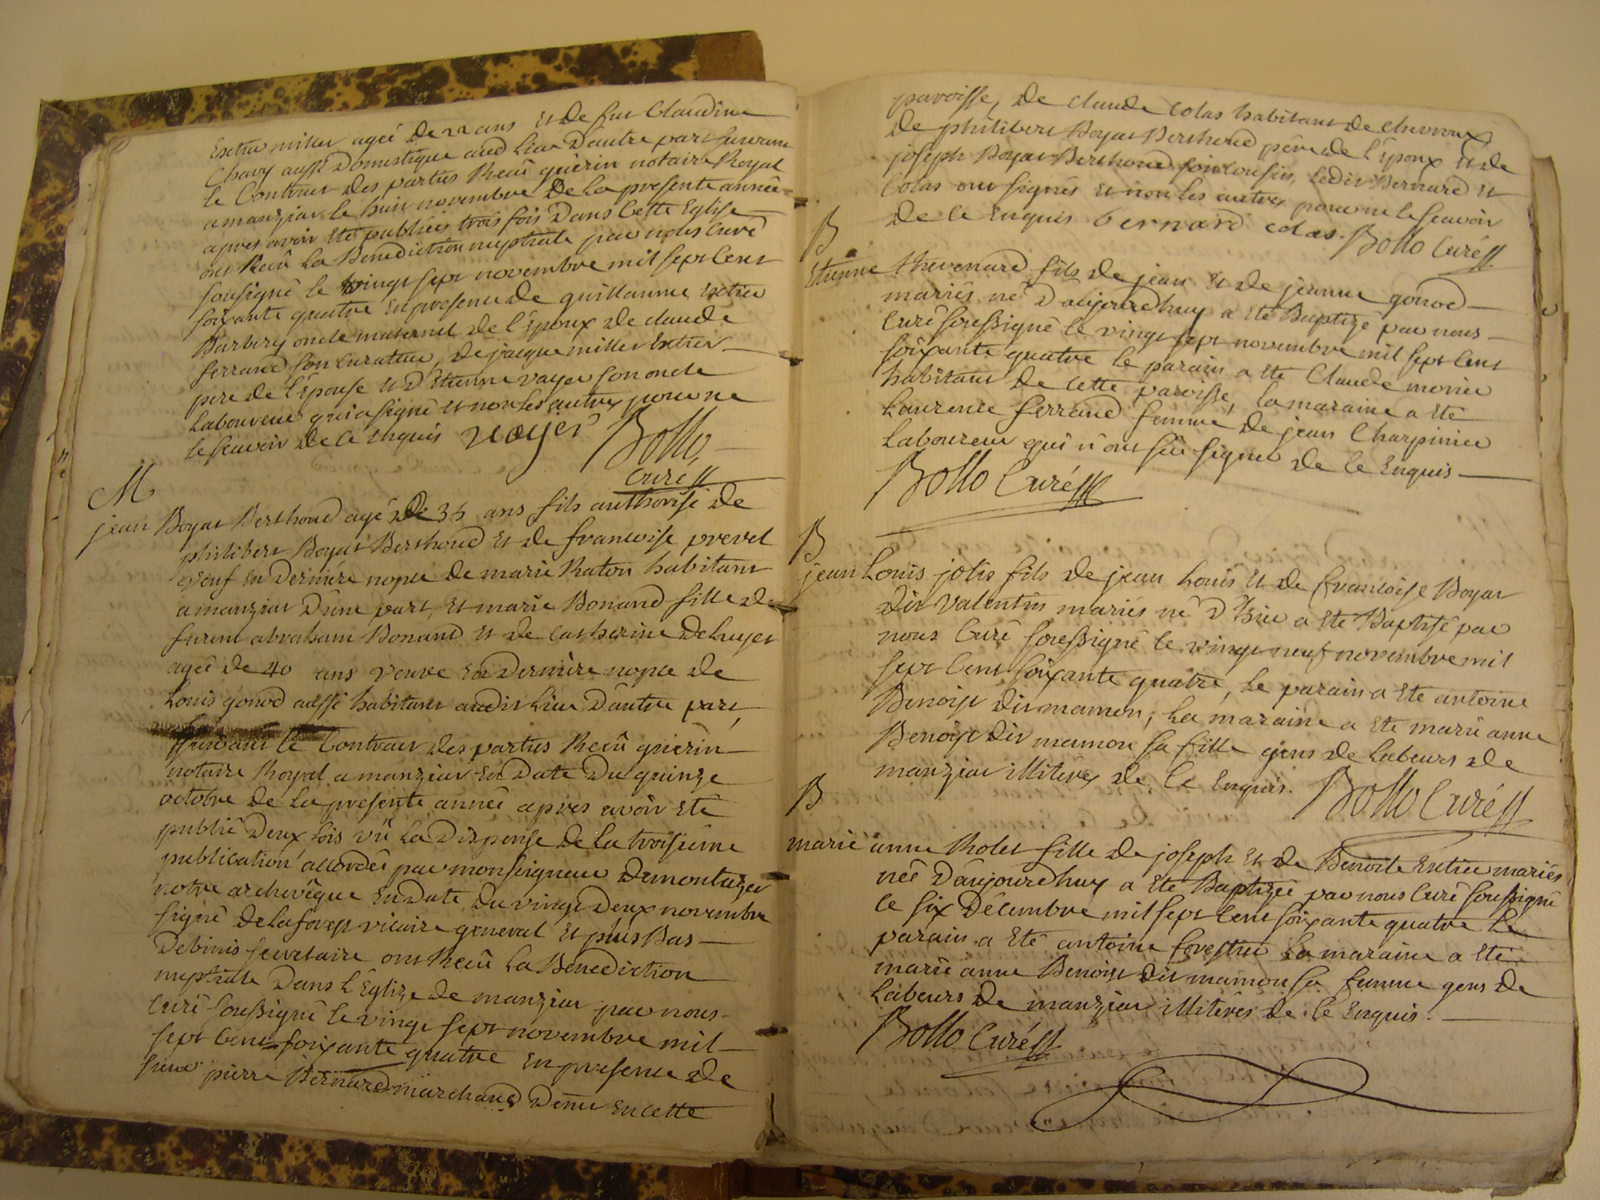 Extier miller agée de 22 ans et de fut Claudine
Chavy aussi Domestique aud lieu D'autre part suivant
le Contrat des parties Recû guérin notaire Royal
a manziat le huit novembre de la presente année
apres avoir été publiées trois fois Dans cette Eglise
ont Recû la Benediction nuptiale par nous Curé
sousigné le vingt sept novembre mil sept cent
soixante quatre En presence de guillaume Extier
Barbery oncle maternel de l'Epoux de claude
ferrand son curateur, de jacque miller Extier
pere de l'épouse et d'Etienne vayer son oncle
Laboureur qui a signé et non les autres pour ne
le scavoir de ce Enquis vayer Bollo
Curé
M
jean Boyat Berthoud agé de 35 ans fils authorisé de
philibert Boyat Berthoud et de francoise prevel
veuf en Derniére nopce de marie Raton habitant
a manziat D'une part, et marie Bonand fille de
furent abraham Bonand et de catherine Deluyer
agée de 40 ans veuve En Derniére nopce de
Louis gonod aussi habitant audit lieu D'autre part
suivant le Contrat des parties Recû guérin
notaire Royal a manziat en Date Du quinze
octobre de la presente année apres avoir été
publié Deux fois vû la Dispense de la troisiéme
publication accordée par monseigneur Demontazet
notre archevêque en Date du vingt Deux novembre
signé Delaforest vicaire general et plus Bas
Debinis secretaire ont Recû la Benediction
nuptiale Dans l'Eglize de manziat par nous
Curé soussigné le vingt sept novembre mil
sept cent soixante quatre En presence de
sieur pierre Bernard marchand Deme En cette
paroisse, de claude colas habitant de chevroux
de philibert Boyat Berthoud père de l'époux et de
joseph Boyat Berthoud son cousin, ledit Bernard et
Colas ont signés et non les autres pour ne le scavoir
de ce Enquis bernard colas. Bollo Curé
B
Etienne thevenard fils de jean et de jeanne gonod
mariés né D'aujourdhuy a été Baptizé par nous
Curé soussigné le vingt sept novembre mil sept cent
soixante quatre le parain a été Claude morier
habitant de cette paroisse, la maraine a été
Laurence ferrand femme de jean Charpinier
Laboureur qui n'ont sûs signer de ce Enquis
Bollo Curé
B
jean Louis jolis fils de jean Louis et de francoise Boyat
dit valentin mariés né D'hier a été Baptisé par
nous Curé soussigné le vingt neuf novembre mil
sept cent soixante quatre, le parain a été antoine
Benoist dit mamon, la maraine a été marie anne
Benoist dit mamon sa fille gens de labeurs de
manziat illitérés de ce Enquis. Bollo Curé
B
marie anne Rolet fille de joseph et de Benoite Extier mariés
née D'aujourdhuy a été Baptizée par nous Curé soussigné
le six Décembre mil sept cent soixante quatre le
parain a été antoine forestier la maraine a été
marie anne Benoist dit mamon sa femme gens de
labeurs de manziat illitérés de ce Enquis.
Bollo Curé